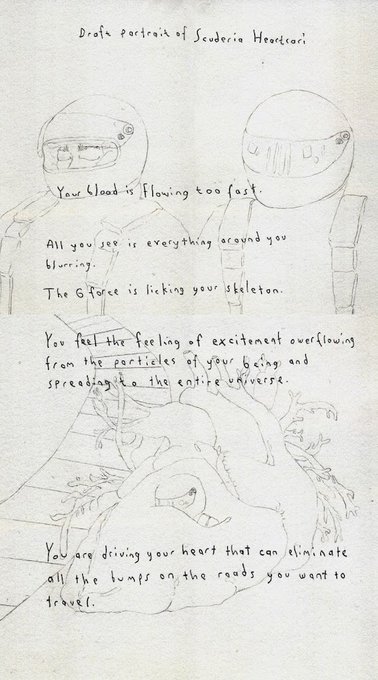 Draft portrait of Scuderia Heartcari
Your blood is flowing too fast.
All you see is everything around you
blurring.
The G force is licking your skeleton.
You feel the feeling of excitement overflowing
from the particles of your being and
spreading to the entire universe.
You are driving your heart that can eliminate
all the bumps on the roads you want to
travel.